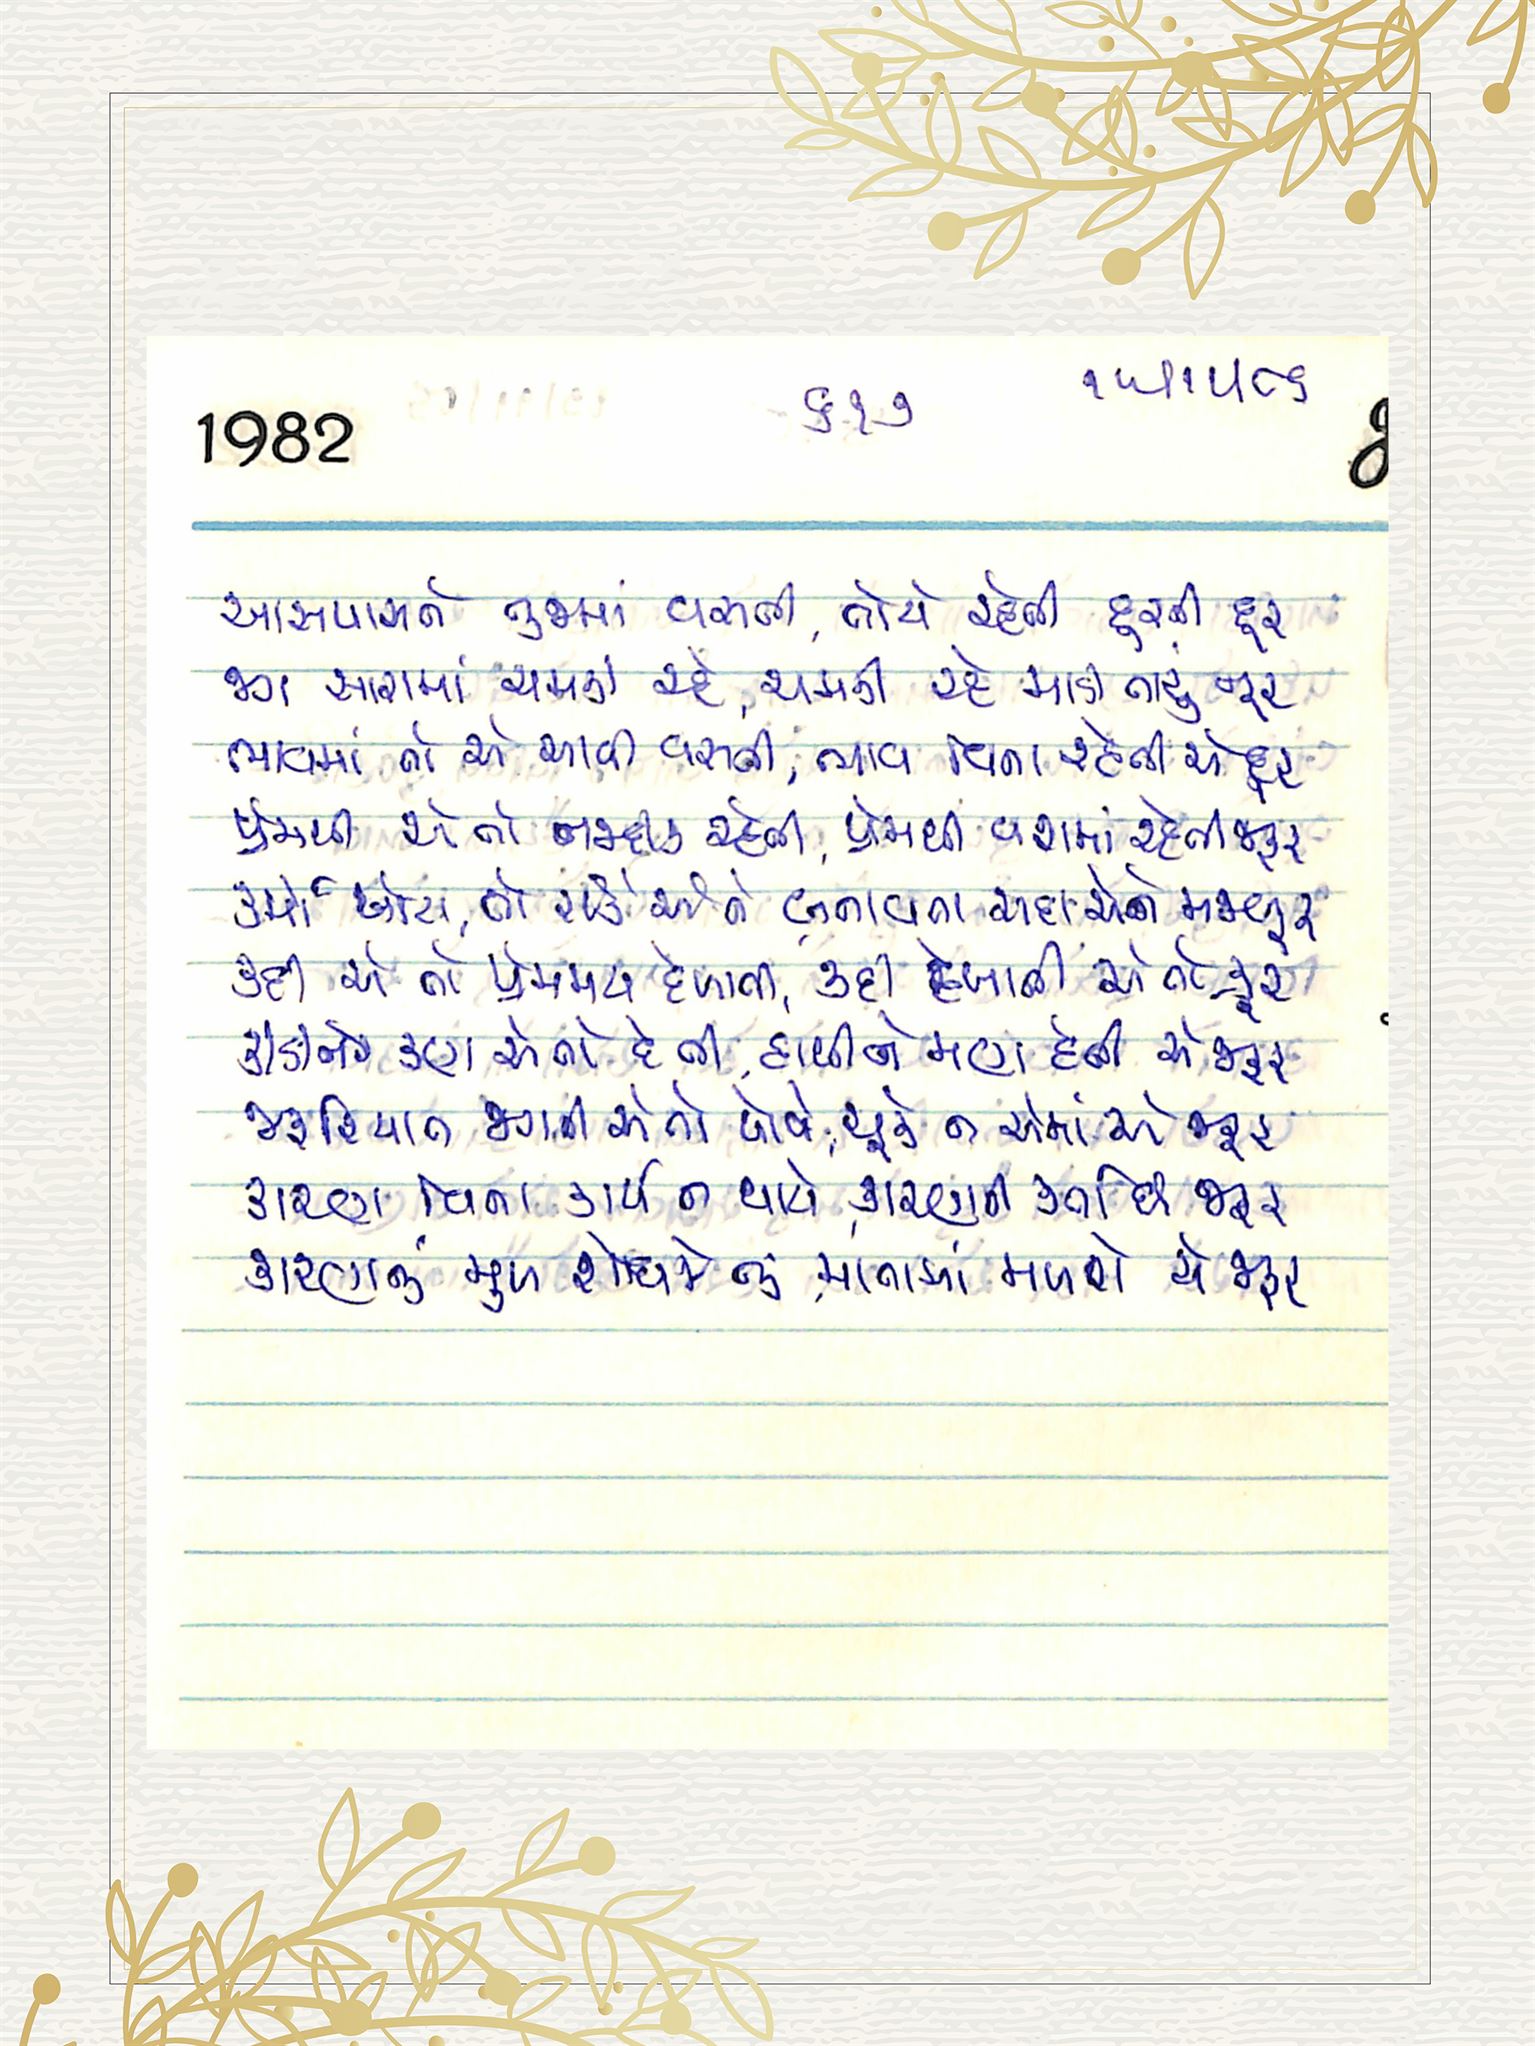 1982
૬૧૭
૧૫/૧૧/૮૬
આસપાસને તુજમાં વસતી, તોયે રહેતી દૂરની દૂર
જગ સારામાં ચમકી રહે, ચમકી રહે માડી તારું નૂર
ભાવમાં તો એ આવી વસતી, ભાવ વિના રહેતી એ દૂર
પ્રેમથી એ તો નજદીક રહેતી, પ્રેમથી વશમાં રહેતી જરૂર
કર્મો તો એને બનાવતા સદા એને મજબૂર
કદી એ તો પ્રેમમય દેખાતી, કદી દેખાતી એ તો ક્રૂર
કીડીને કણ એ તો દેતી, હાથીને મણ દેતી એ જરૂર
જરૂરિયાત જગની એ તો પોષે, ચૂકે ન એમાં એ જરૂર
કારણ વિના કાર્ય ન થાયે, કારણની કર્તા છે જરૂર
કારણનું મુળ શોધજે તું, માતામાં મળશે એ જરૂર